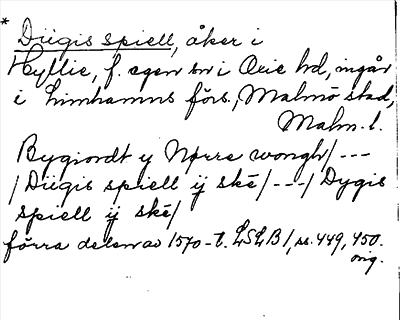 * Diigis spiell, åker i
Hyllie, f. egen sn i Oxie hd, ingår
i Limhamns förs., Malmö stad,
Malm. l.
Bygiordt y Nørre wongh/ ---
/Diigis spiell ÿ skē/ ---/ Dygis
spiell ÿ skē/
förra delen av 1570-t. LSLB 1, ss. 449, 450.
orig.